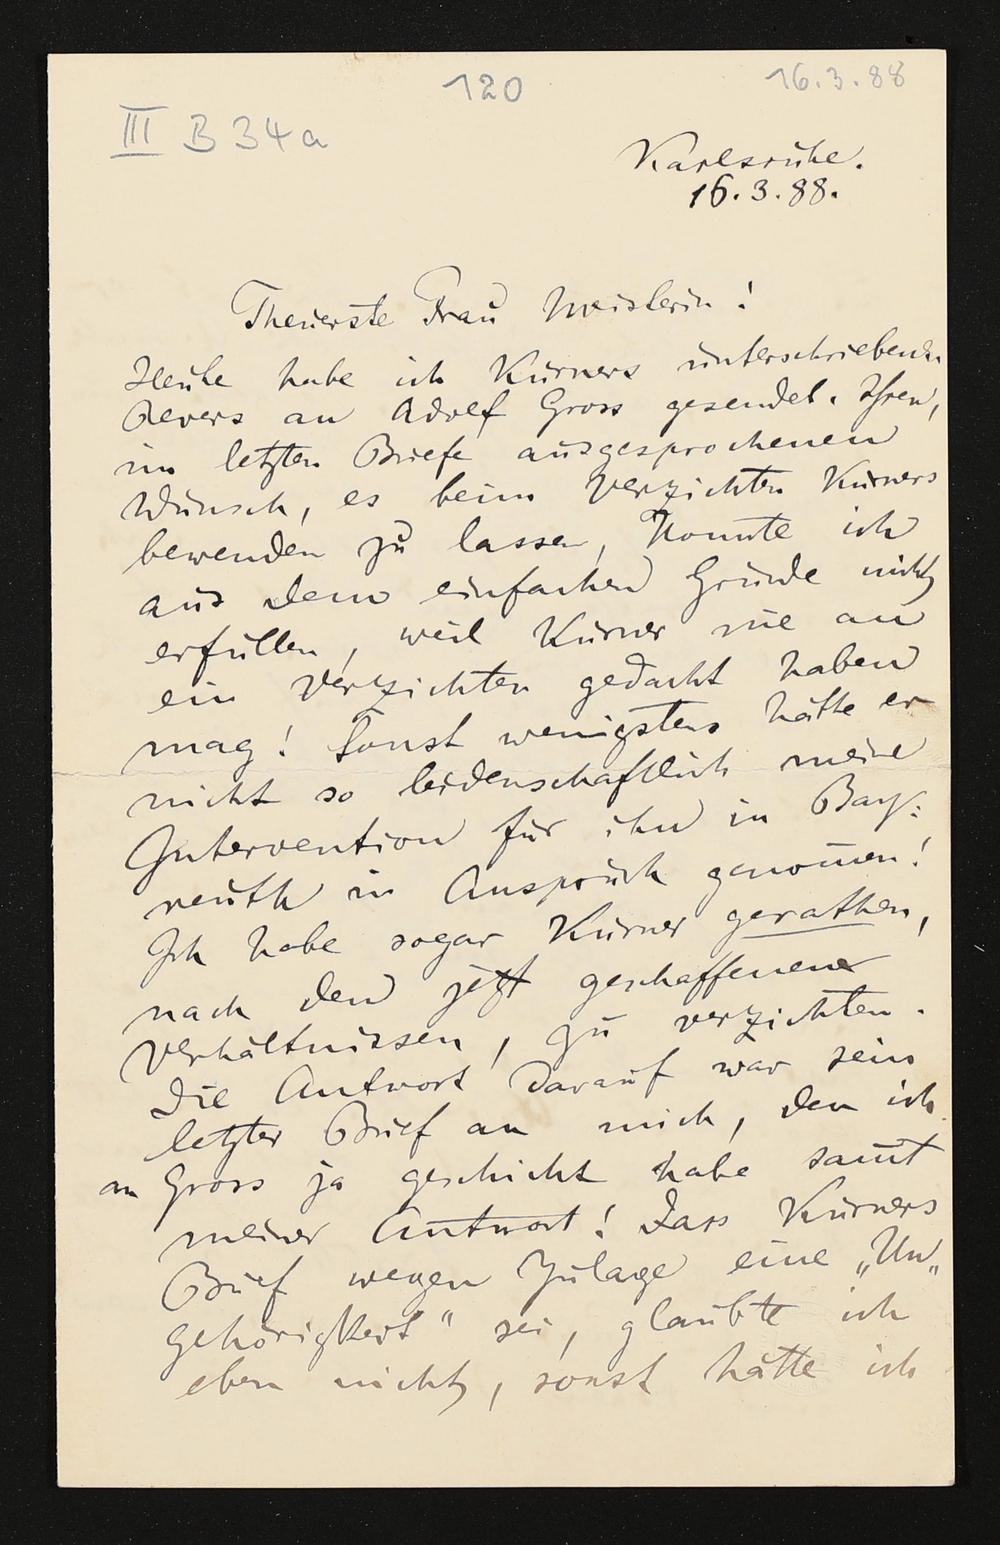 120
16.3.88
III B 34a
Karlsruhe.
16.3.88.
Theuerste Frau Meisterin!
Heute habe ich Kürners unterschriebenen
Revers an Adolf Gross gesendet. Ihren,
im letzten Briefe ausgesprochenen
Wunsch, es beim Verzichten Kürners
bewenden zu lassen, konnte ich
aus dem einfachen Grunde nicht
erfüllen, weil Kürner nie an
ein Verzichten gedacht haben
mag! Sonst wenigstens hätte er
nicht so leidenschaftlich meine
Intervention für ihn in Bay:
reuth in Anspruch genom̅en!
Ich habe sogar Kürner gerathen,
nach den jetzt geschaffenen
Verhältnissen, zu verzichten.
Die Antwort darauf war sein
letzter Brief an mich, den ich
an Gross ja geschickt habe sam̅t
meiner Antwort! Dass Kürners
Brief wegen Zulage eine „Un„
gehörigkeit" sei, glaubte ich
eben nicht, sonst hätte ich